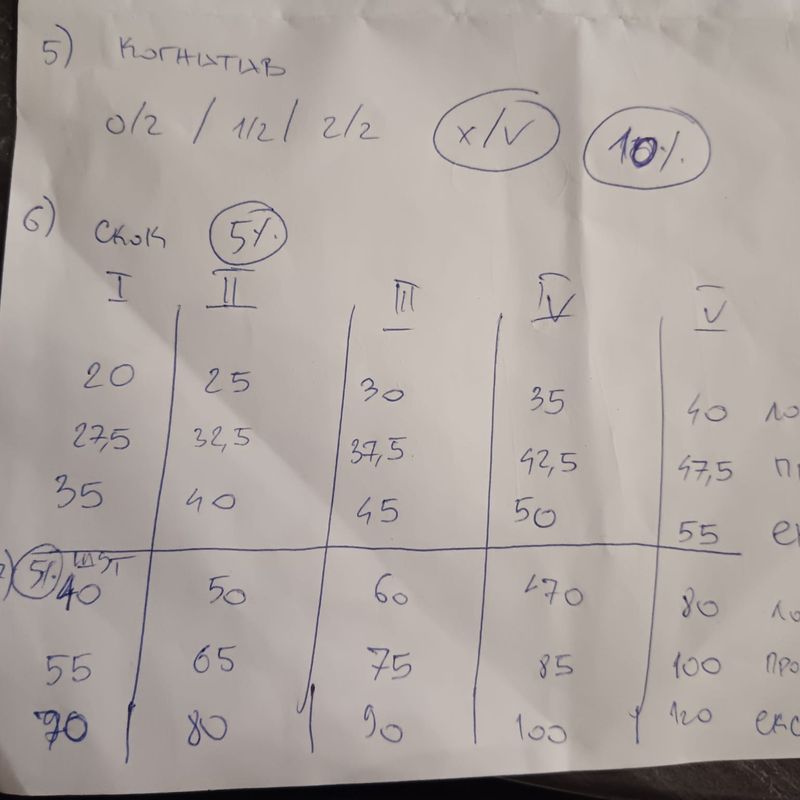 5) КОГНИТИВ
0/2 / 1/2 / 2/2 X/V 10%
6) СКОК 5%
I II III IV V
20 25 30 35 40 ЛО
27,5 32,5 37,5 42,5 47,5 П
35 40 45 50 55 Е
5%
40 50 60 70 80 ЛО
55 65 75 85 100 ПРО
70 80 90 100 120 ЕКС